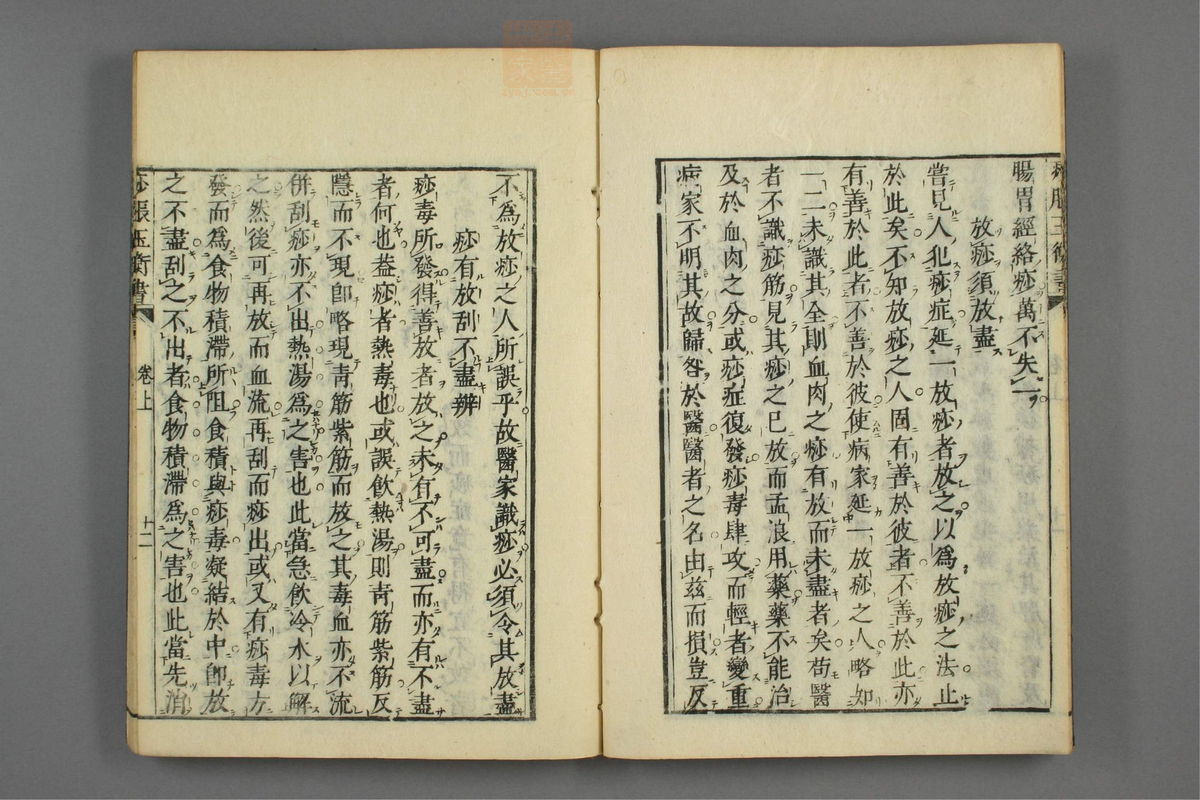 腸胃經絡痧萬不失一
放痧須放盡
嘗見人犯痧症延一放痧者放之以爲放痧之法止
於此矣不知放痧之人固有善於彼者不善於此亦
有善於此者不善於彼使病家延一放痧之人略如
一二未識其全則血肉之痧有放而未盡者矣苟醫
者不識痧筋見其痧之已放而孟浪用藥藥不能治
及於血肉之分或痧症復發痧毒肆攻而輕者變重
病家不明其故歸咎於醫醫者之名由茲而損豈反
不爲放痧之人所誤乎故醫家識痧必須令其放盡
痧有放刮不盡辨
痧毒所發得善放者放之未有不可盡而亦有不盡
者何也葢痧者熱毒也或誤飮熱湯則靑筋紫筋反
隱而不現卽略現靑筋紫筋而放之其毒血亦不流
併刮痧亦不出熱湯爲之害也此當急飮冷水以解
之然後可再放而血流再刮而痧出或又有痧毒方
發而爲食物積滯所阻食積與痧毒凝結於中卽放
之不盡刮之不出者食物積滯爲之害也此當先消
痧脹玉衡書
卷上
十二